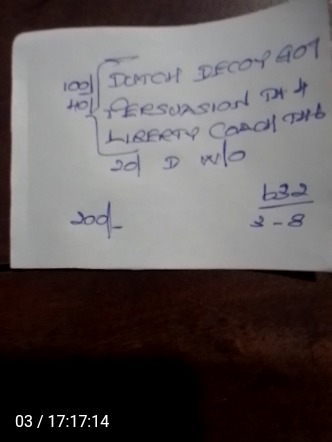 100/ DUTCH DECOY GO7
40/ PERSUASION TH 4
LIBERTY COACH TH6
20/ D W/O
b32
200/- 3-8
03 / 17:17:14